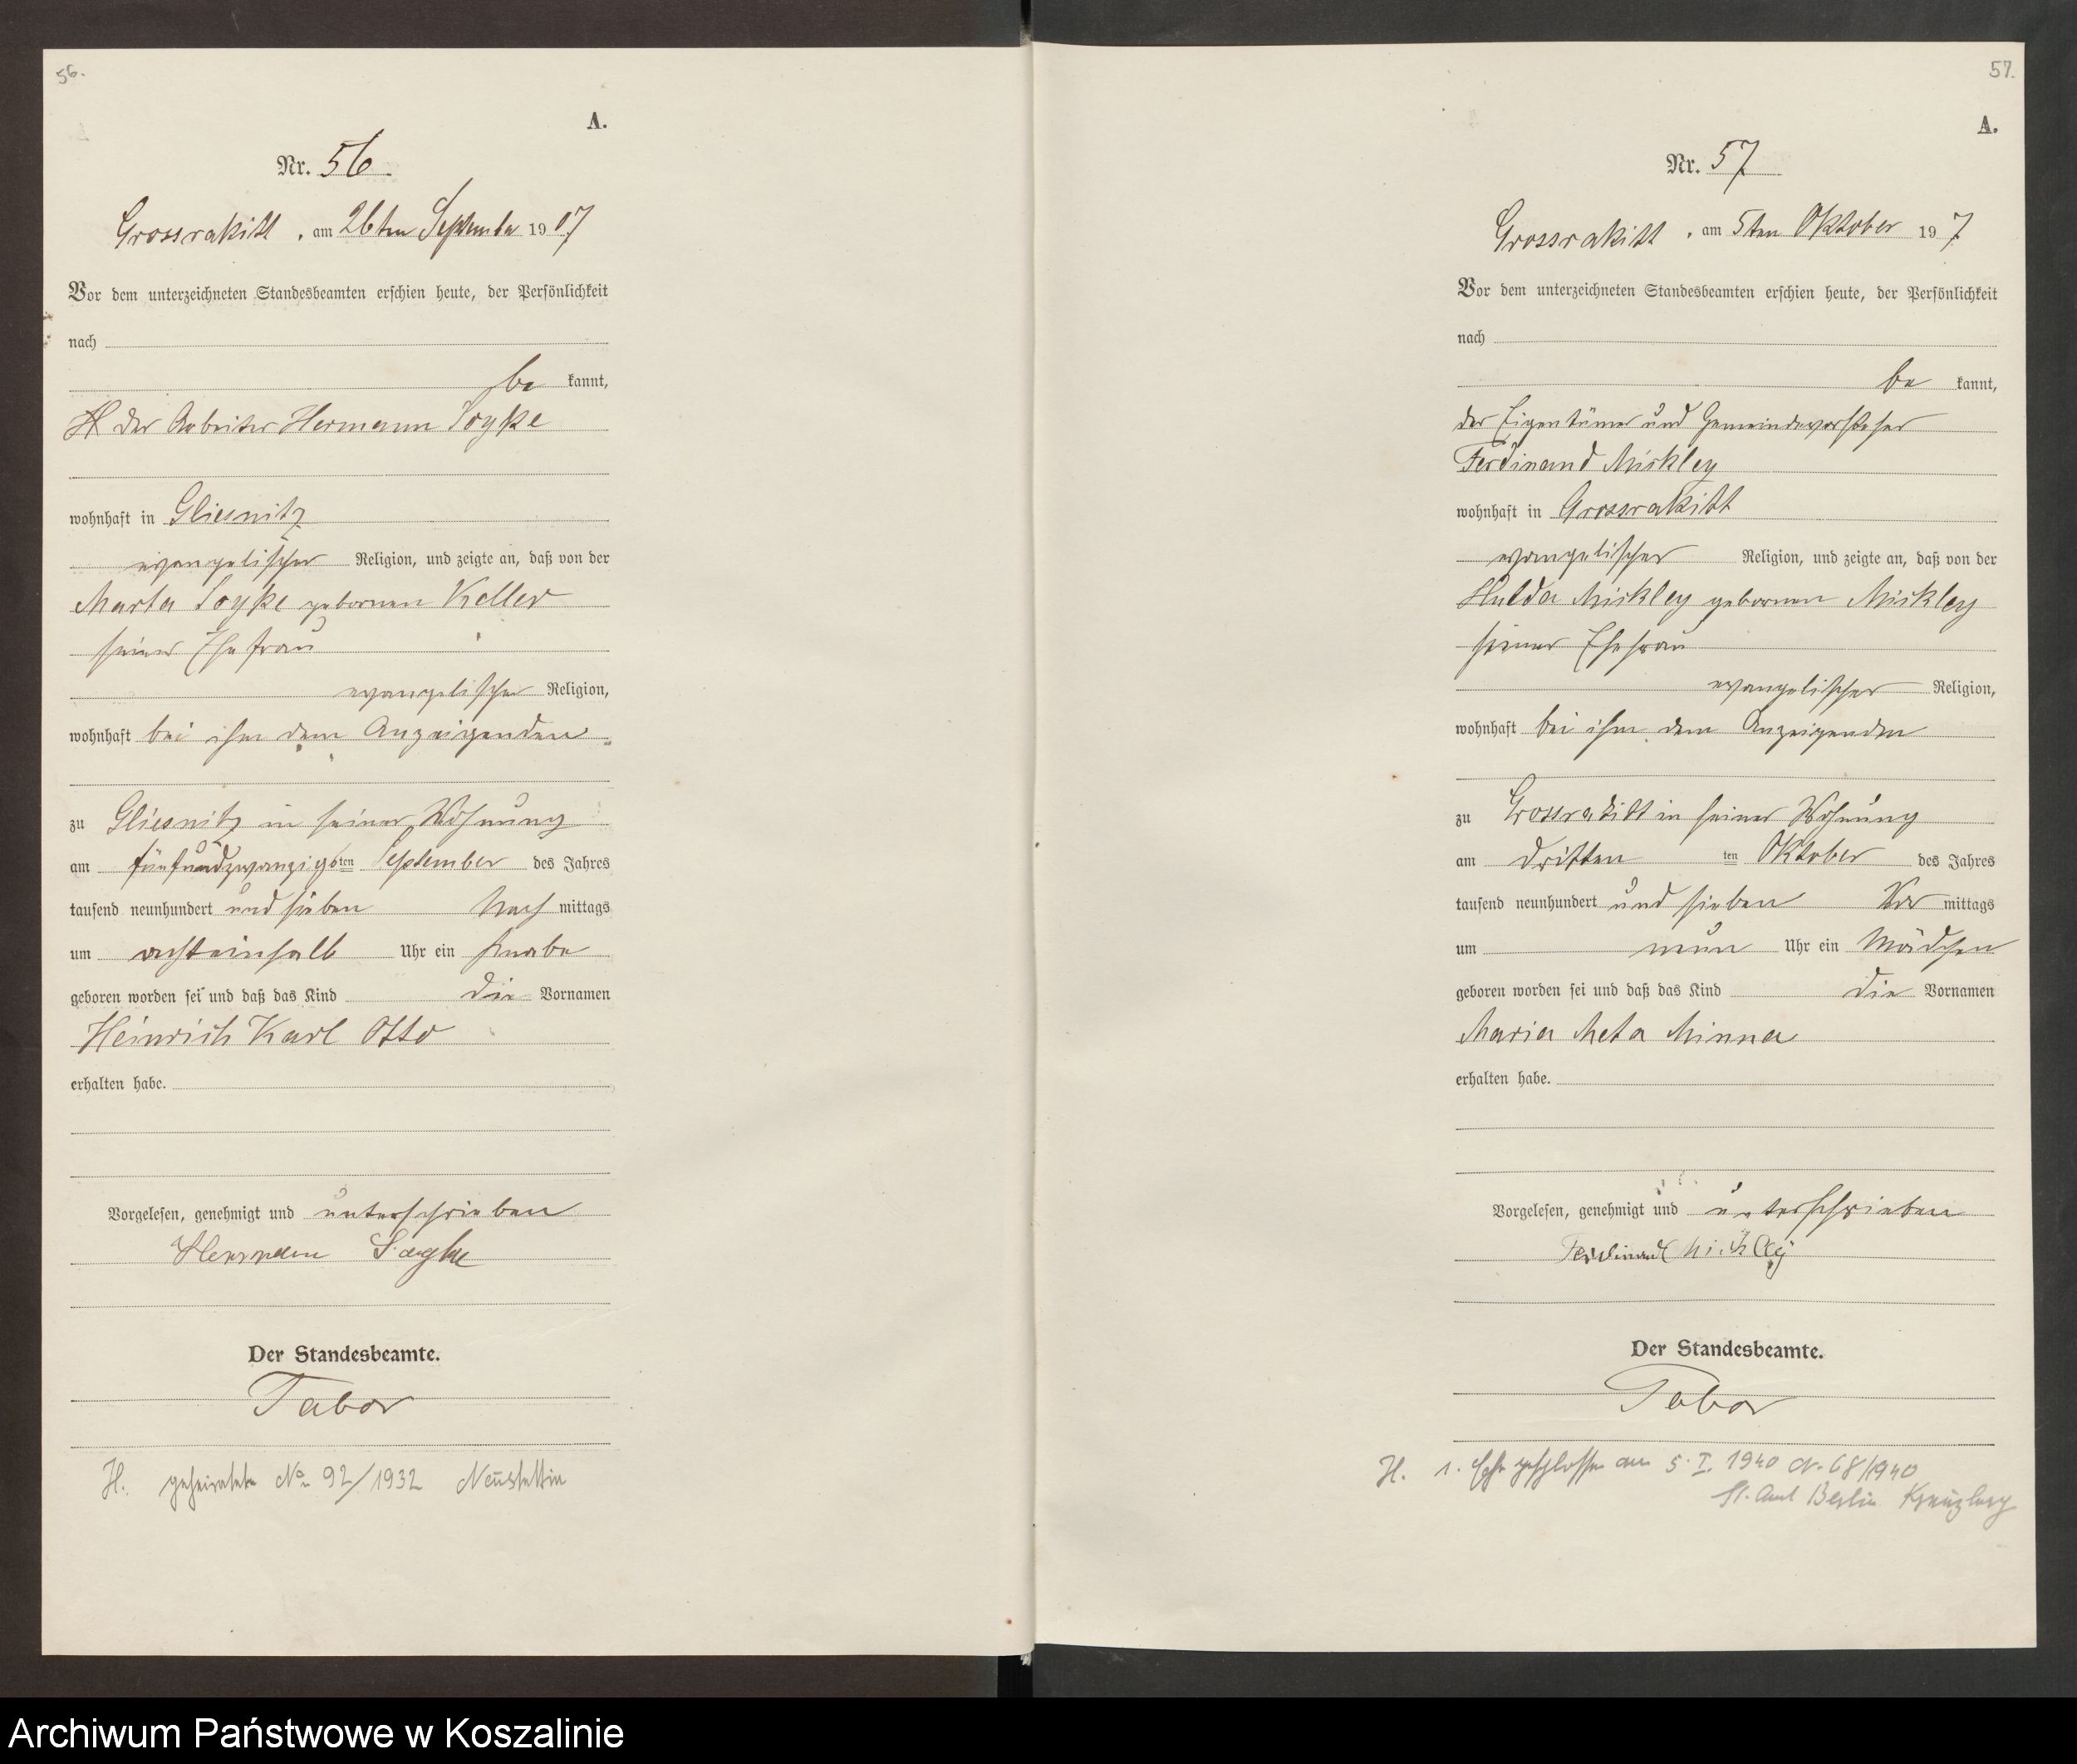 56.
A.
Nr. 56
Grossrakitt, am 26ten September 1907
Vor dem unterzeichneten Standesbeamten erschien heute, der Persönlichkeit
nach
be kannt,
der Arbeiter Hermann Sogke
wohnhaft in Gliesnitz
evangelischer Religion, und zeigte an, daß von der
Marta Sogke gebornen Keller
seiner Ehefrau
evangelischer Religion,
wohnhaft bei ihm dem Anzeigenden
zu Gliesnitz in seiner Wohnung
am fünfundzwanzigsten September des Jahres
tausend neunhundert und sieben Nach mittags
um achteinhalb Uhr ein Knabe
geboren worden sei und daß das Kind die Vornamen
Heinrich Karl Otto
erhalten habe.
Vorgelesen, genehmigt und unterschrieben
Hermann
Der Standesbeamte.
Tabor
H. geheiratet No 92/1932 Neustettin
57.
A.
Nr. 57
Grossrakitt, am 5ten Oktober 197
Vor dem unterzeichneten Standesbeamten erschien heute, der Persönlichkeit
nach
be kannt,
der Eigentümer und Gemeindevorsteher
Ferdinand Mickley
wohnhaft in Grossrakitt
evangelischer Religion, und zeigte an, daß von der
Hulda Mickley gebornen Mickley
seiner Ehefrau
evangelischer Religion,
wohnhaft bei ihm dem Anzeigenden
zu Grossrakitt in seiner Wohnung
am dritten ten Oktober des Jahres
tausend neunhundert und sieben Vor mittags
um neun Uhr ein Mädchen
geboren worden sei und daß das Kind die Vornamen
Maria Meta Minna
erhalten habe.
Vorgelesen, genehmigt und unterschrieben
Ferdinand Mickley
Der Standesbeamte.
Tabor
H. 1. Ehe geschlossen am 5. I. 1940 Nr. 68/1940
St. Amt Berlin Kreuzberg
Archiwum Państwowe w Koszalinie